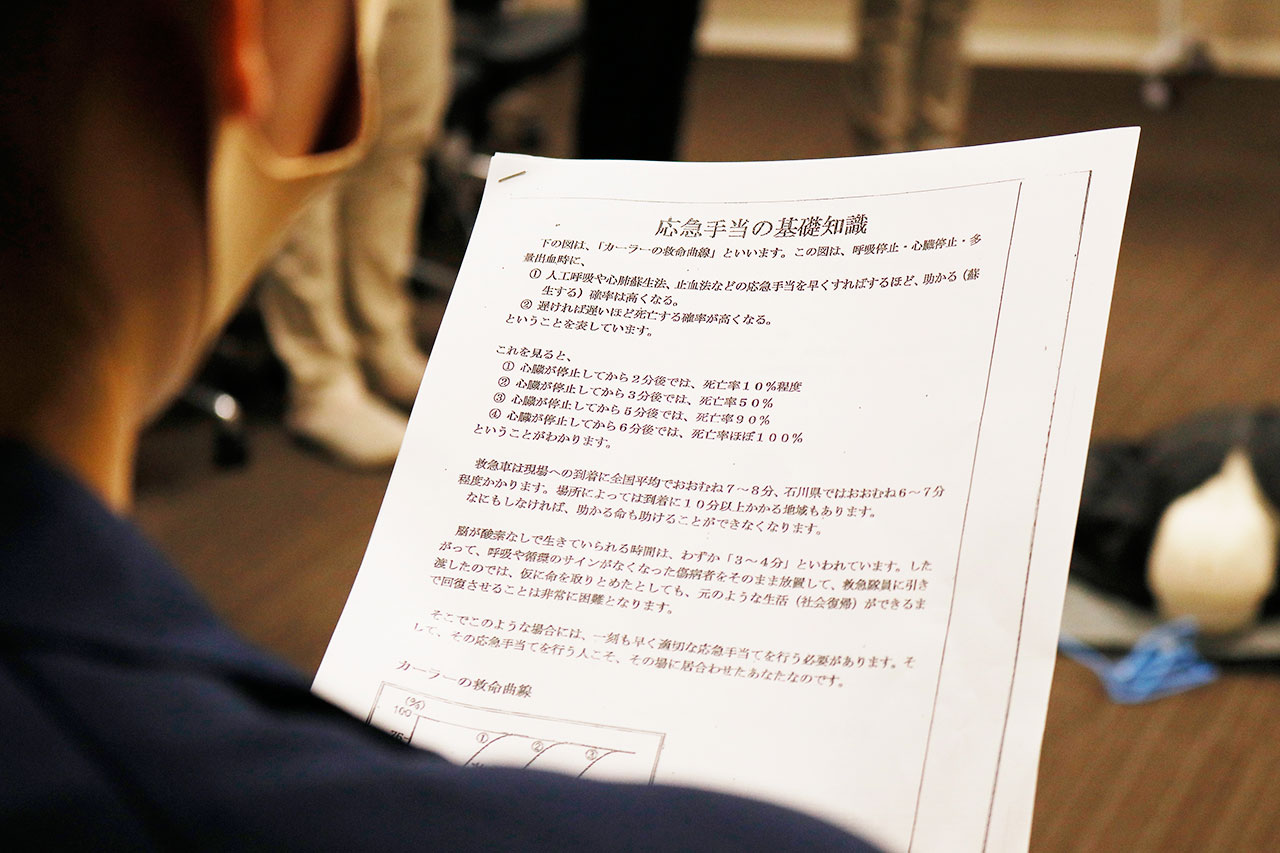 応急手当の基礎知識
下の図は、「カーラーの救命曲線」といいます。この図は、呼吸停止・心臓停止・多
量出血時に、
① 人工呼吸や心肺蘇生法、止血法などの応急手当を早くすればするほど、助かる（蘇
生する）確率は高くなる。
② 遅ければ遅いほど死亡する確率が高くなる。
ということを表しています。
これを見ると、
① 心臓が停止してから２分後では、死亡率１０％程度
② 心臓が停止してから３分後では、死亡率５０％
③ 心臓が停止してから５分後では、死亡率９０％
④ 心臓が停止してから６分後では、死亡率ほぼ１００％
ということがわかります。
救急車は現場への到着に全国平均でおおむね７～８分、石川県ではおおむね６～７分
程度かかります。場所によっては到着に１０分以上かかる地域もあります。
なにもしなければ、助かる命も助けることができなくなります。
脳が酸素なしで生きていられる時間は、わずか「３～４分」といわれています。した
がって、呼吸や循環のサインがなくなった傷病者をそのまま放置して、救急隊員に引き
渡したのでは、仮に命を取りとめたとしても、元のような生活（社会復帰）ができるま
で回復させることは非常に困難となります。
そこでこのような場合には、一刻も早く適切な応急手当てを行う必要があります。そ
して、その応急手当てを行う人こそ、その場に居合わせたあなたなのです。
カーラーの救命曲線
(%)
100
① ② ③